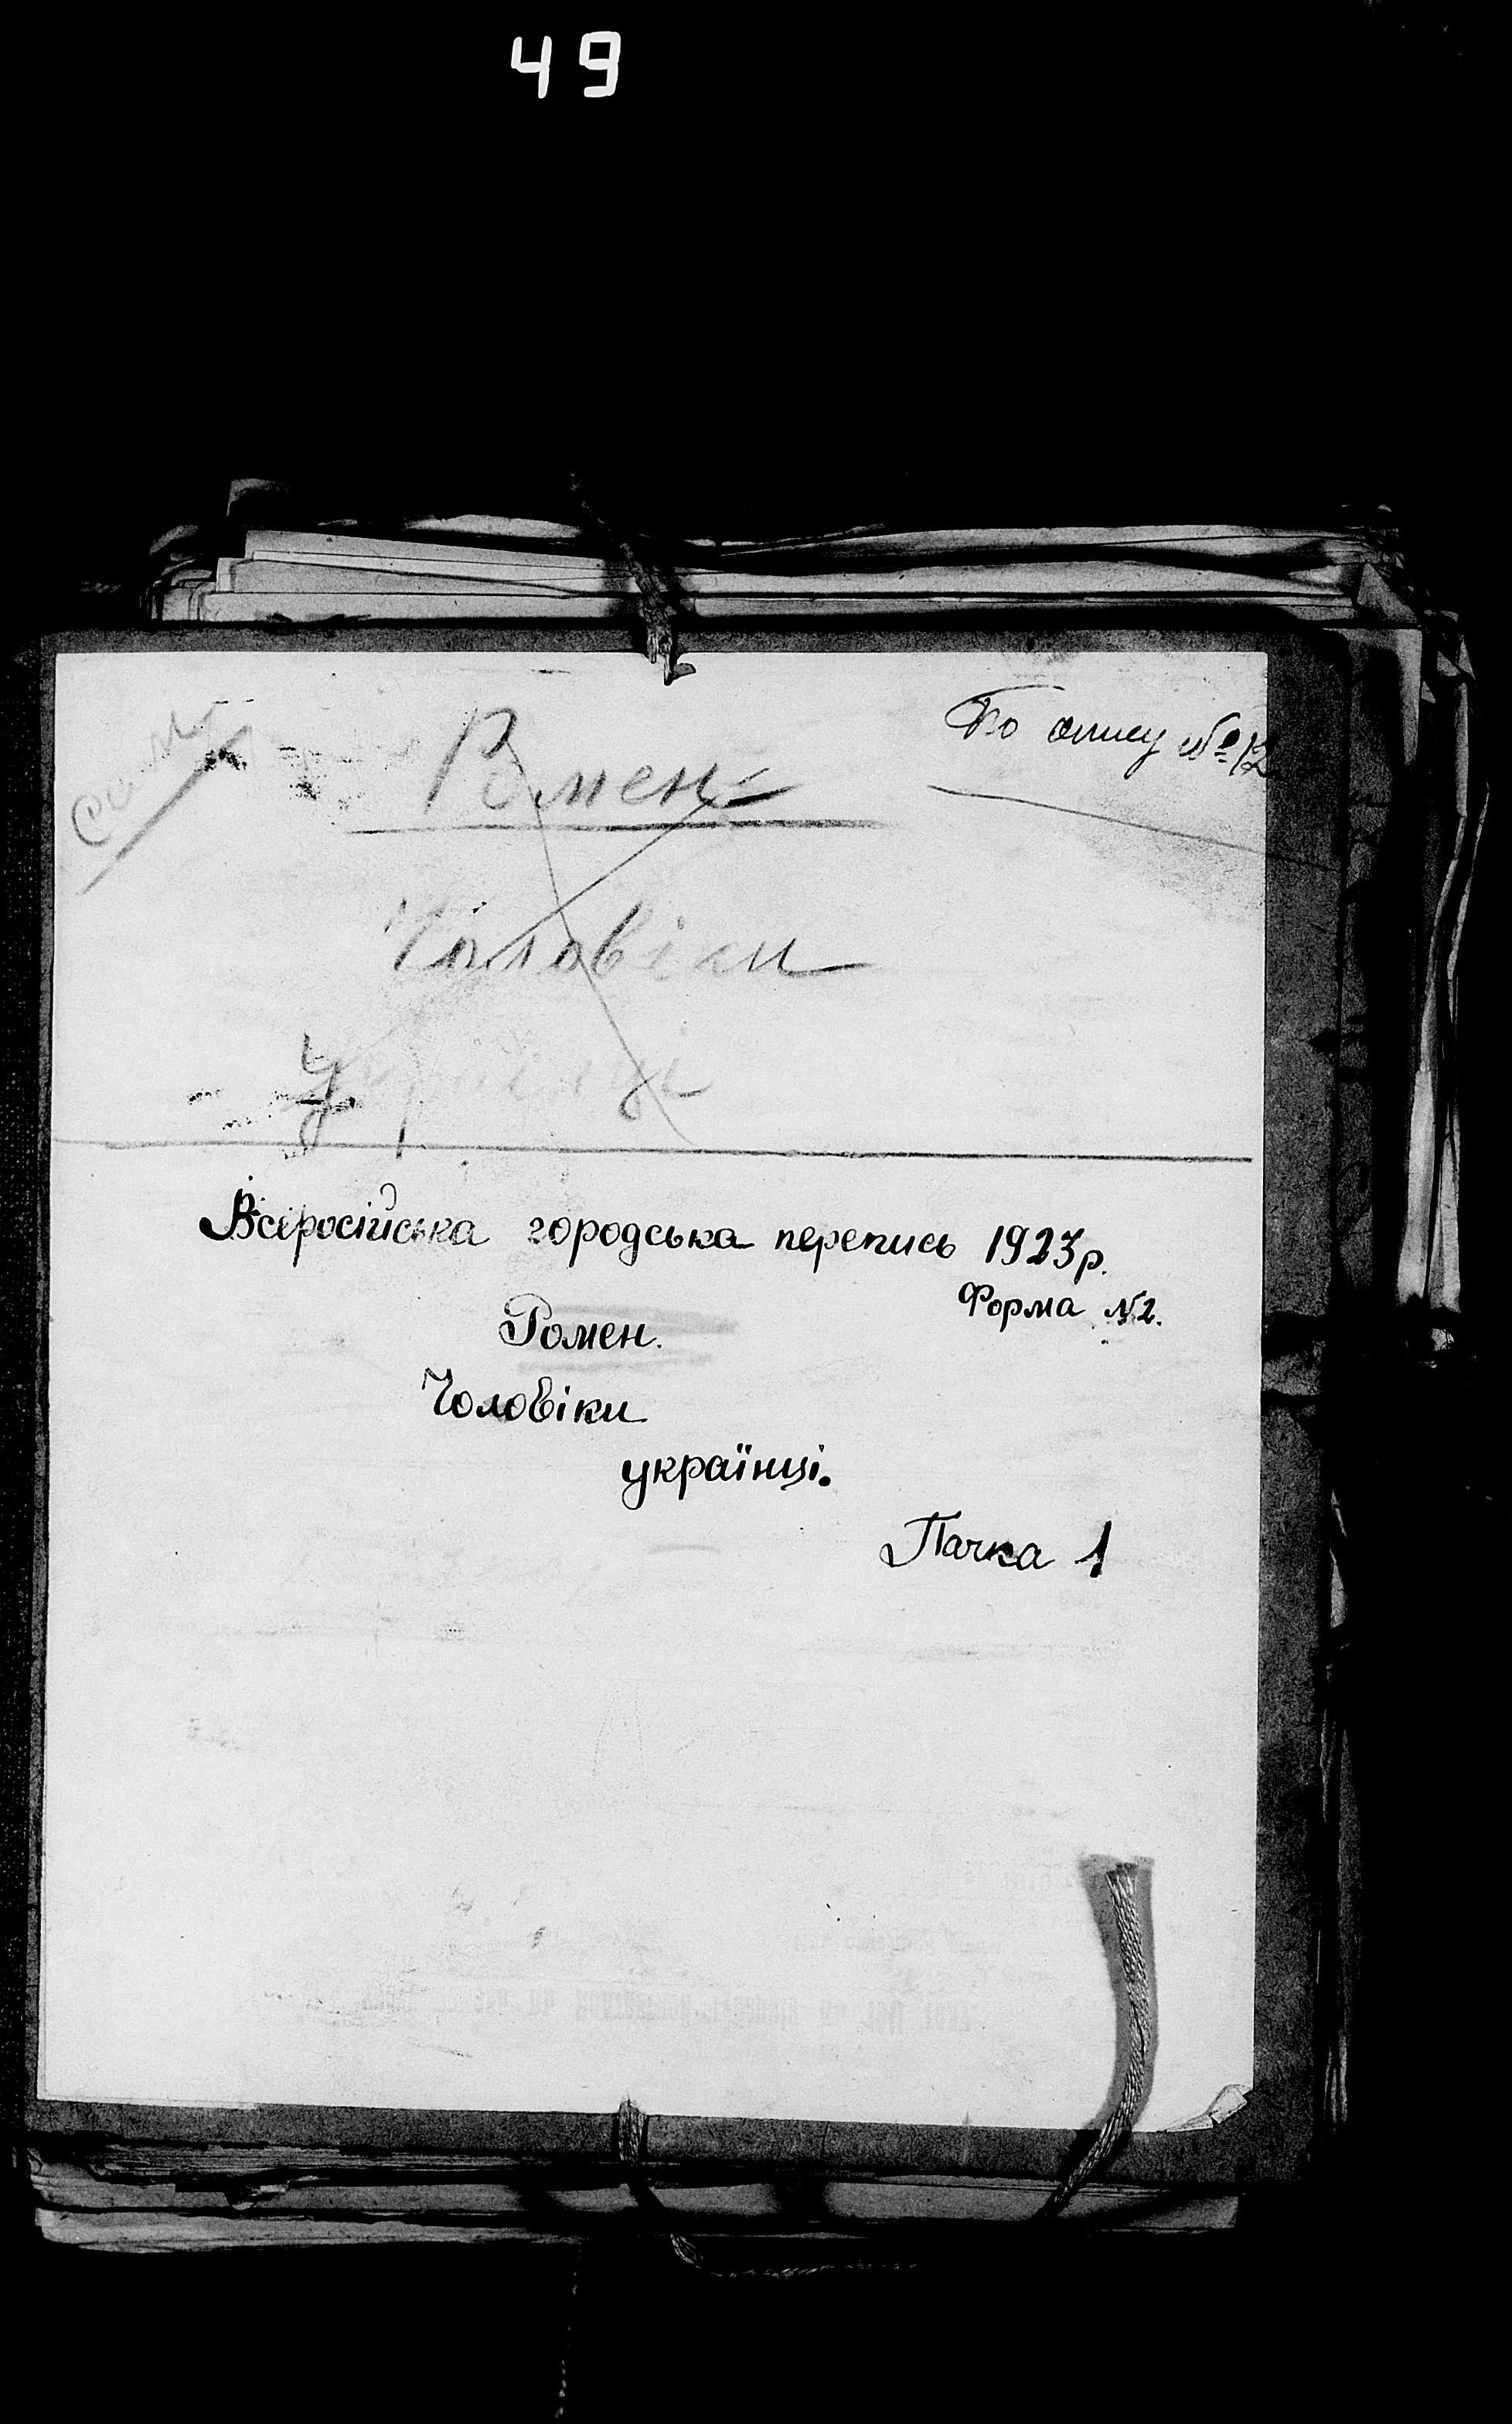 49
По опису № 12
Ромен
Чоловіки
Всеросійська городська перепись 1923р.
Форма №2.
Ромен.
Чоловіки
українці.
Пачка 1